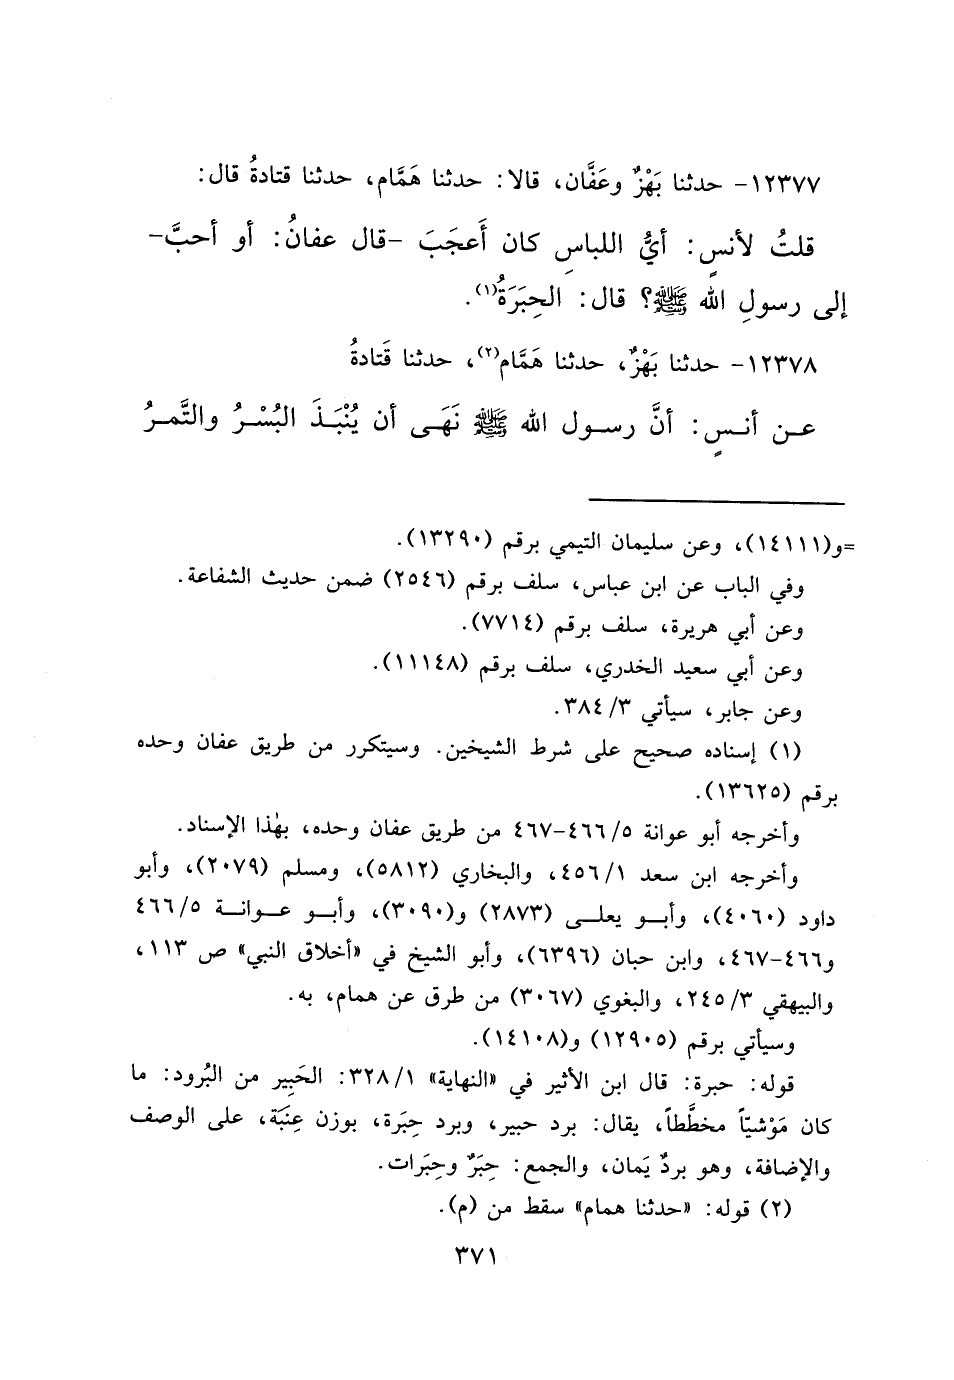 ١٢٣٧٧- حدثنا بَهْزٌ وعَفَّان، قالا: حدثنا هَمَّام، حدثنا قتادةُ قال:
قلتُ لأنسٍ: أيُّ اللباسِ كان أَعجَبَ -قال عفانُ: أو أحبَّ-
إلى رسولِ الله ﷺ؟ قال: الحِبَرَةُ(١).
١٢٣٧٨- حدثنا بَهْزٌ، حدثنا هَمَّام(٢)، حدثنا قَتادةُ
عن أنسٍ: أنَّ رسول الله ﷺ نَهَى أن يُنْبَذَ البُسْرُ والتَّمرُ
=و(١٤١١١)، وعن سليمان التيمي برقم (١٣٢٩٠).
وفي الباب عن ابن عباس، سلف برقم (٢٥٤٦) ضمن حديث الشفاعة.
وعن أبي هريرة، سلف برقم (٧٧١٤).
وعن أبي سعيد الخدري، سلف برقم (١١١٤٨).
وعن جابر، سيأتي ٣/ ٣٨٤.
(١) إسناده صحيح على شرط الشيخين. وسيتكرر من طريق عفان وحده
برقم (١٣٦٢٥).
وأخرجه أبو عوانة ٥/ ٤٦٦-٤٦٧ من طريق عفان وحده، بهٰذا الإسناد.
وأخرجه ابن سعد ١/ ٤٥٦، والبخاري (٥٨١٢)، ومسلم (٢٠٧٩)، وأبو
داود (٤٠٦٠)، وأبو يعلى (٢٨٧٣) و(٣٠٩٠)، وأبو عوانة ٥/ ٤٦٦
و٤٦٦-٤٦٧، وابن حبان (٦٣٩٦)، وأبو الشيخ في «أخلاق النبي» ص ١١٣،
والبيهقي ٣/ ٢٤٥، والبغوي (٣٠٦٧) من طرق عن همام، به.
وسيأتي برقم (١٢٩٠٥) و(١٤١٠٨).
قوله: حبرة: قال ابن الأثير في «النهاية» ١/ ٣٢٨: الحَبِير من البُرود: ما
كان مَوْشيّاً مخطَّطاً، يقال: برد حبير، وبرد حِبَرة، بوزن عِنَبَة، على الوصف
والإضافة، وهو بردٌ يَمان، والجمع: حِبَرٌ وحِبَرات.
(٢) قوله: «حدثنا همام» سقط من (م).
٣٧١